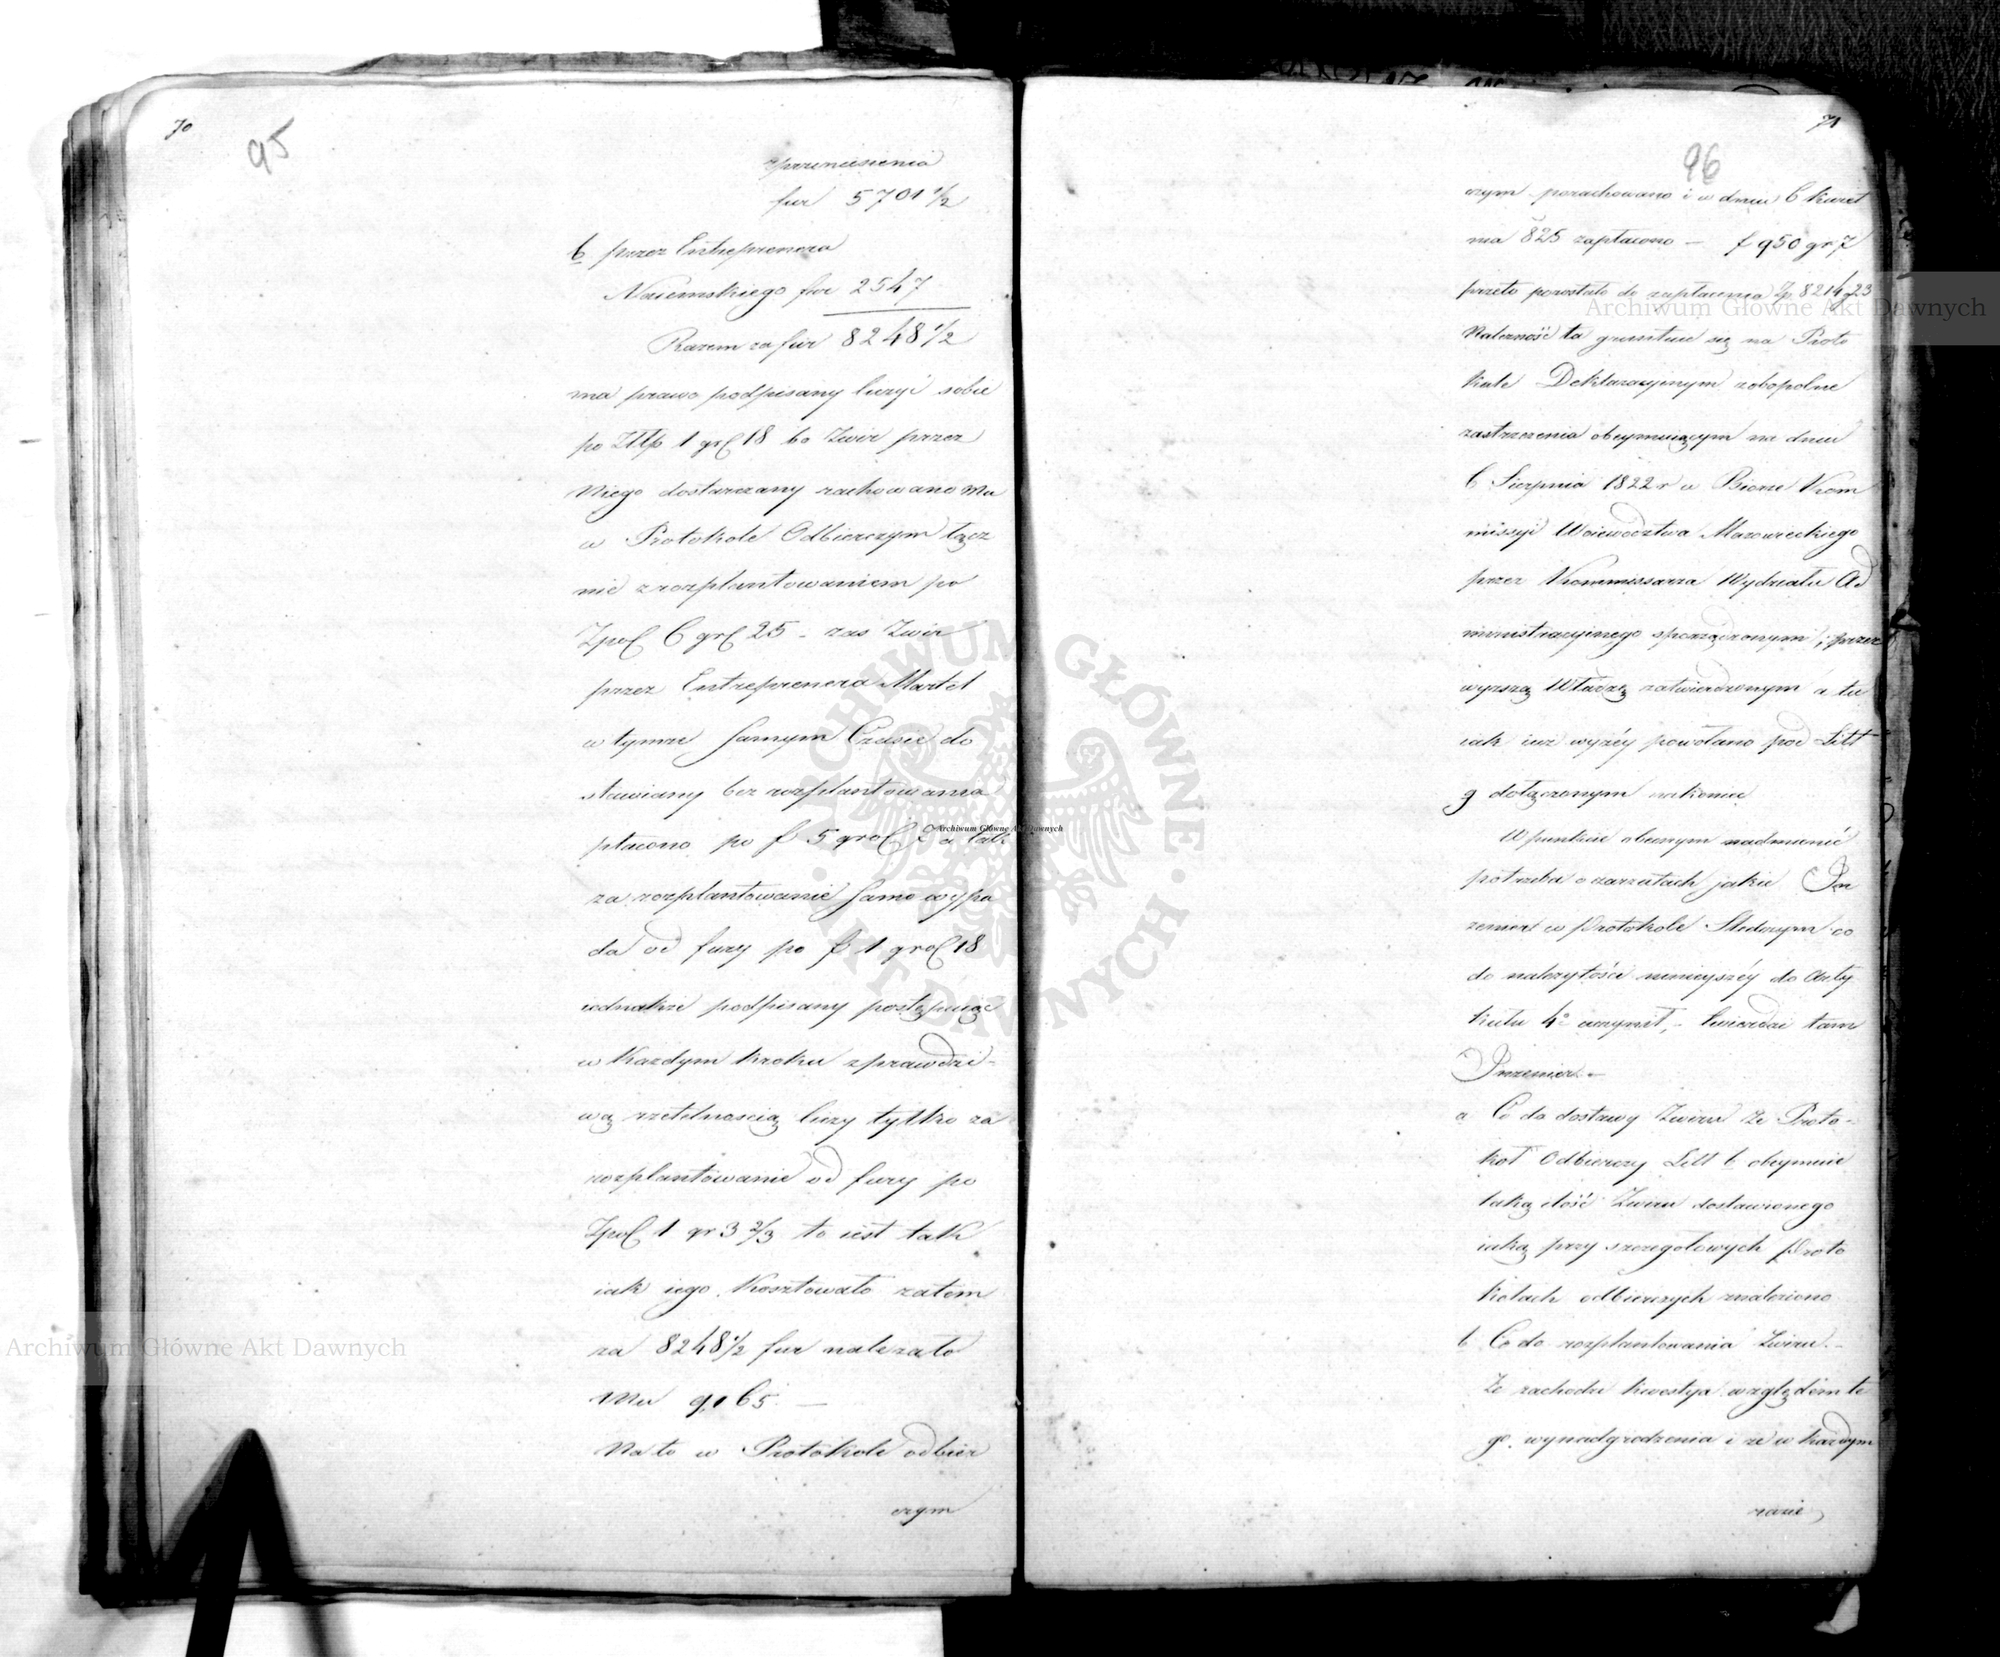 70
95
zprzeniesienia
fur 5701 1/2
b przez Entreprenera
Naiemskiego fur 2547
Razem za fur 8248 1/2
ma prawo podpisany liczyć sobie
po Złłp 1 gr 18 bo Żwir przez
Niego dostarczany rachowano Mu
w Protokole Odbierczym łącz
nie z rozplantowaniem po
Zpol 6 gr 25 - zas Żwir
przez Entreprenera Martel
w tymze samym Czasie do
stawiany bez rozplantowania
płacono po f 5 gro 7 a tak
za rozplantowanie samo wypa
da od fury po f 1 gro 18
iednakze podpisany postępuiąc
w Kazdym Kroku z prawdzi-
wą rzetelnoscią liczy tylko za
rozplantowanie od fury po
Zpol 1 gr 3 2/3 to iest tak
iak iego Kosztowało zatem
za 8248 1/2 fur nalezało
Mu 9165. —
Na to w Protokole odbier
czym
71
96
czym porachowano i w dniu 6 Kwiet
nia 825 zapłacono — f 950 gr 7
przeto pozostało do zapłacenia Zp 8214 gr 23
Nalezność ta gruntuie się na Proto
kule Deklaracyinym zobopolne
zastrzezenia obeymuiącym na dniu
6 Sierpnia 1822 r w Biorze Kom
missyi Woiewodztwa Mazowieckiego
przez Kommissarza Wydziału Ad
ministracyinego sporządzonym i przez
wyzszą Władzę zatwierdzonym a tu
iak iuz wyżéy powołano pod Litt
g dołączonym w koncu
W punkcie obecnym nadmienić
potrzeba o zarzutach jakie In
zenier w Protokole Sledczym co
do nalezytości ninieyszéy do Arty
kułu 4° uczynił, - twierdzi tam
Inzenier. —
a Co do dostawy Żwiru Ze Proto-
koł Odbierczy Litt b obeymuie
taką ilość Żwiru dostawionego
iaką przy szczegolowych Proto
kołach odbierczych znaleziono
b Co do rozplantowania Żwiru. -
Ze zachodzi kwestya względem te
go wynadgrodzenia i ze w kazdym
razie,
Archiwum Główne Akt Dawnych
Archiwum Główne Akt Dawnych
Archiwum Główne Akt Dawnych
ARCHIWUM GŁÓWNE AKT DAWNYCH